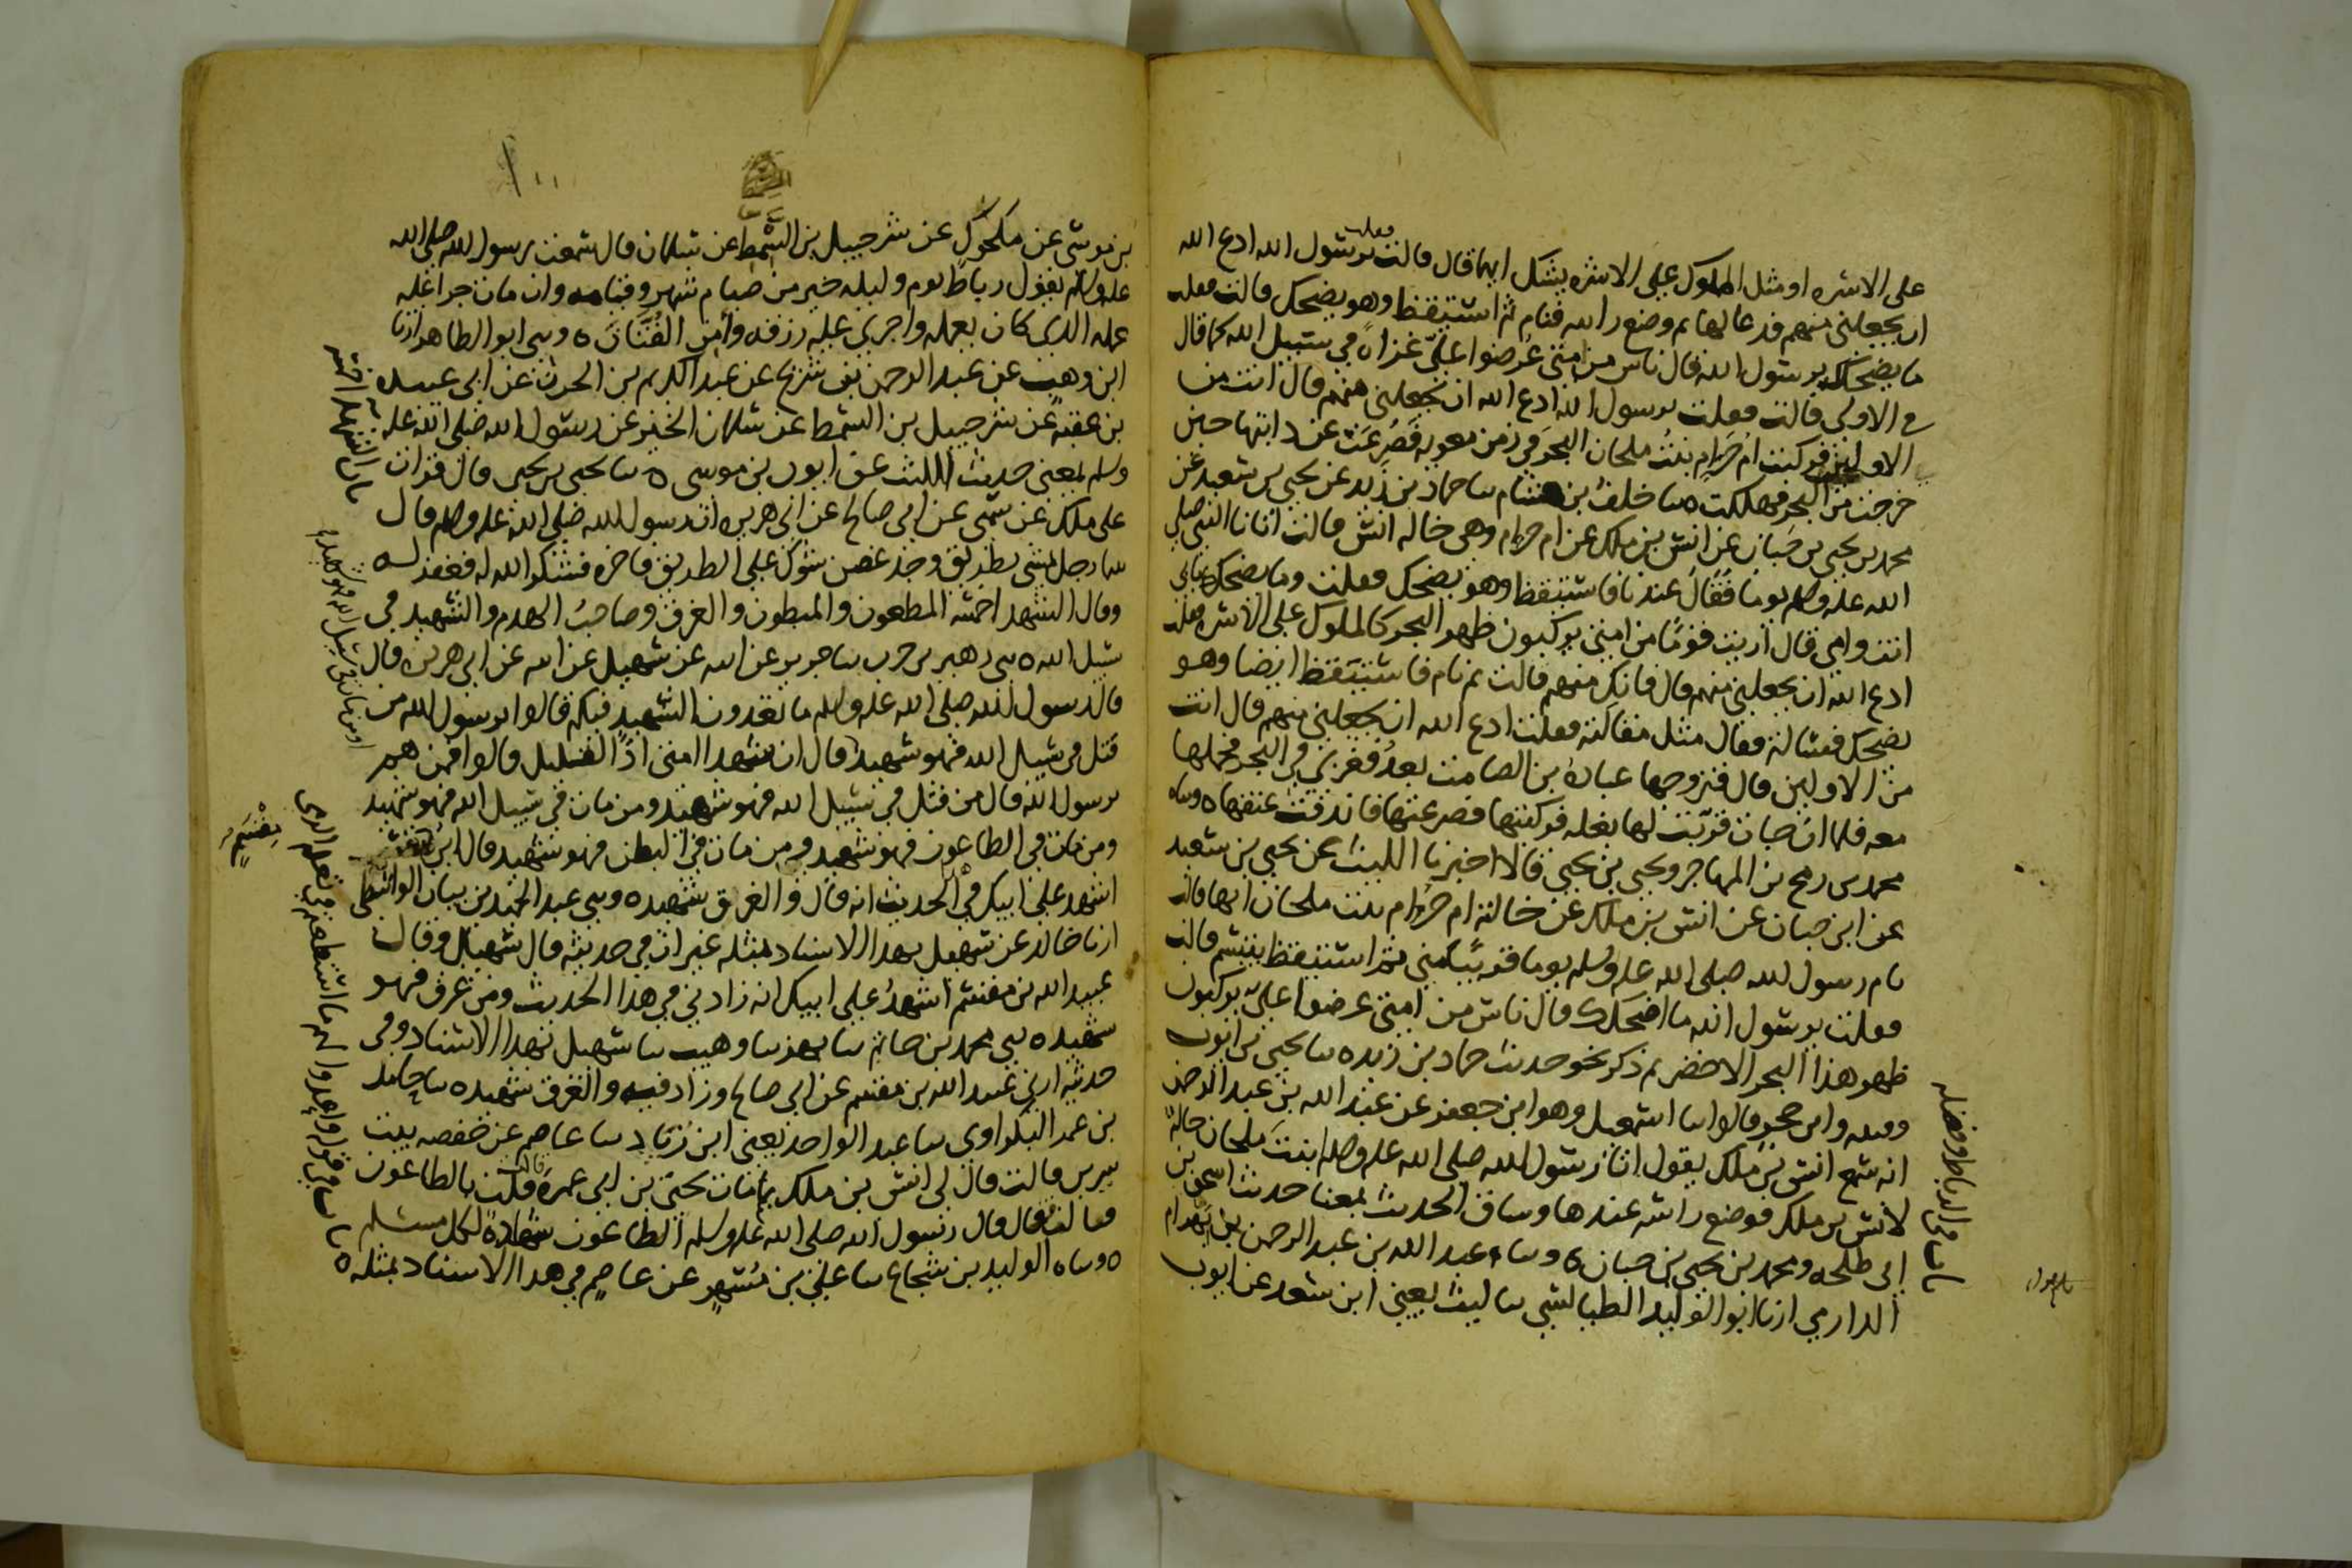 على الاسره او مثل الملوك على الاسره يشك ايهما قال قالت فقلت يرسول الله ادع الله
ان يجعلني منهم فدعا لها ثم وضع راسه فنام ثم استيقظ وهو يضحك قالت فقلت
ما يضحكك يرسول الله قال ناس من امتي عرضوا علي غزاه في سبيل الله كما قال
في الاولى قالت فقلت يرسول الله ادع الله ان يجعلني منهم قال انت من
الاولين فركبت ام حرام بنت ملحان البحر في زمن معويه فصرعت عن دابتها حين
خرجت من البحر فهلكت ه سا خلف بن هشام سا حماد بن زيد عن يحيى بن سعيد عن
محمد بن يحيى بن حبان عن انس بن ملك عن ام حرام وهي خاله انس قالت اتانا النبي صلى
الله عليه وسلم يوما فقال عندنا فاستيقظ وهو يضحك فقلت وما يضحكك بابي
انت وامي قال اريت قوما من امتي يركبون ظهر البحر كالملوك على الاسره فقلت
ادع الله ان يجعلني منهم قال فانك منهم قالت ثم نام فاستيقظ ايضا وهو
يضحك فسالته فقال مثل مقالته فقلت ادع الله ان يجعلني منهم قال انت
من الاولين قال فتزوجها عباده بن الصامت بعد فغزى في البحر فحملها
معه فلما ان جات قربت لها بغله فركبتها فصرعتها فاندقت عنقها ه وساه
محمد بن رمح بن المهاجر ويحيى بن يحيى قالا اخبرنا الليث عن يحيى بن سعيد
عن ابن حبان عن انس بن ملك عن خالته ام حرام بنت ملحان انها قالت
نام رسول الله صلى الله عليه وسلم يوما قريبا مني ثم استيقظ يتبسم قالت
فقلت يرسول الله ما اضحكك قال ناس من امتي عرضوا علي يركبون
ظهر هذا البحر الاخضر ثم ذكر نحو حديث حماد بن زيد ه سا يحيى بن ايوب
وقتيبه وابن حجر قالوا سا اسمعيل وهو ابن جعفر عن عبد الله بن عبد الرحمن
انه سمع انس بن ملك يقول اتا رسول الله صلى الله عليه وسلم ابنت ملحان خالة
لانس بن ملك فوضع راسه عندها وساق الحديث بمعنا حديث اسحق بن
ابي طلحه ومحمد بن يحيى بن حبان ه وسا عبد الله بن عبد الرحمن بن بهرام
الدارمي ارنا ابو الوليد الطيالسي سا ليث يعني ابن سعد عن ايوب
باب في الرباط وفضله
بن موسى عن مكحول عن شرحبيل بن السمط عن سلمان قال سمعت رسول الله صلى الله
عليه وسلم يقول رباط يوم وليله خير من صيام شهر وقيامه وان مات جرا عليه
عمله الذي كان يعمله واجري عليه رزقه وامن الفتان ه وسى ابو الطاهر ارنا
ابن وهب عن عبد الرحمن بن شريح عن عبد الكريم بن الحرث عن ابي عبيده
بن عقبه عن شرحبيل بن السمط عن سلمان الخير عن رسول الله صلى الله عليه
وسلم بمعنى حديث الليث عن ايوب بن موسى ه سا يحيى بن يحيى قال قرات
على ملك عن سمي عن ابي صالح عن ابي هريره ان رسول الله صلى الله عليه وسلم قال
بينما رجل يمشي بطريق وجد غصن شوك على الطريق فاخره فشكر الله له فغفر له
وقال الشهدا خمسه المطعون والمبطون والغرق وصاحب الهدم والشهيد في
سبيل الله ه سى زهير بن حرب سا جرير عن سهيل عن ابيه عن ابي هريره قال
قال رسول الله صلى الله عليه وسلم ما تعدون الشهيد فيكم قالوا يرسول الله من
قتل في سبيل الله فهو شهيد قال ان شهدا امتي اذا لقليل قالوا فمن هم
يرسول الله قال من قتل في سبيل الله فهو شهيد ومن مات في سبيل الله فهو شهيد
ومن مات في الطاعون فهو شهيد ومن مات في البطن فهو شهيد قال ابن مقسم
اشهد على ابيك في الحديث انه قال والغريق شهيد ه وسى عبد الحميد بن بيان الواسطي
ارنا خالد عن سهيل بهذا الاسناد مثله غير ان في حديثه قال سهيل وقال
عبيد الله بن مقسم اشهد على ابيك انه زادني في هذا الحديث ومن غرق فهو
شهيد ه سى محمد بن حاتم سا بهز سا وهيب سا سهيل بهذا الاسناد وفي
حديثه ارني عبيد الله بن مقسم عن ابي صالح وزاد فيه والغرق شهيد ه سا حامد
بن عمر البكراوي سا عبد الواحد يعني ابن زياد سا عاصم عن حفصه بنت
سيرين قالت قال لي انس بن ملك بما مات يحيى بن ابي عمره قالت قلت بالطاعون
قالت فقال قال رسول الله صلى الله عليه وسلم الطاعون شهادة لكل مسلم
ه وساه الوليد بن شجاع سا علي بن مسهر عن عاصم في هذا الاسناد بمثله ه
باب الشهدا خمسه
مقسم
باب في قوله واعدوا لهم ما استطعتم من